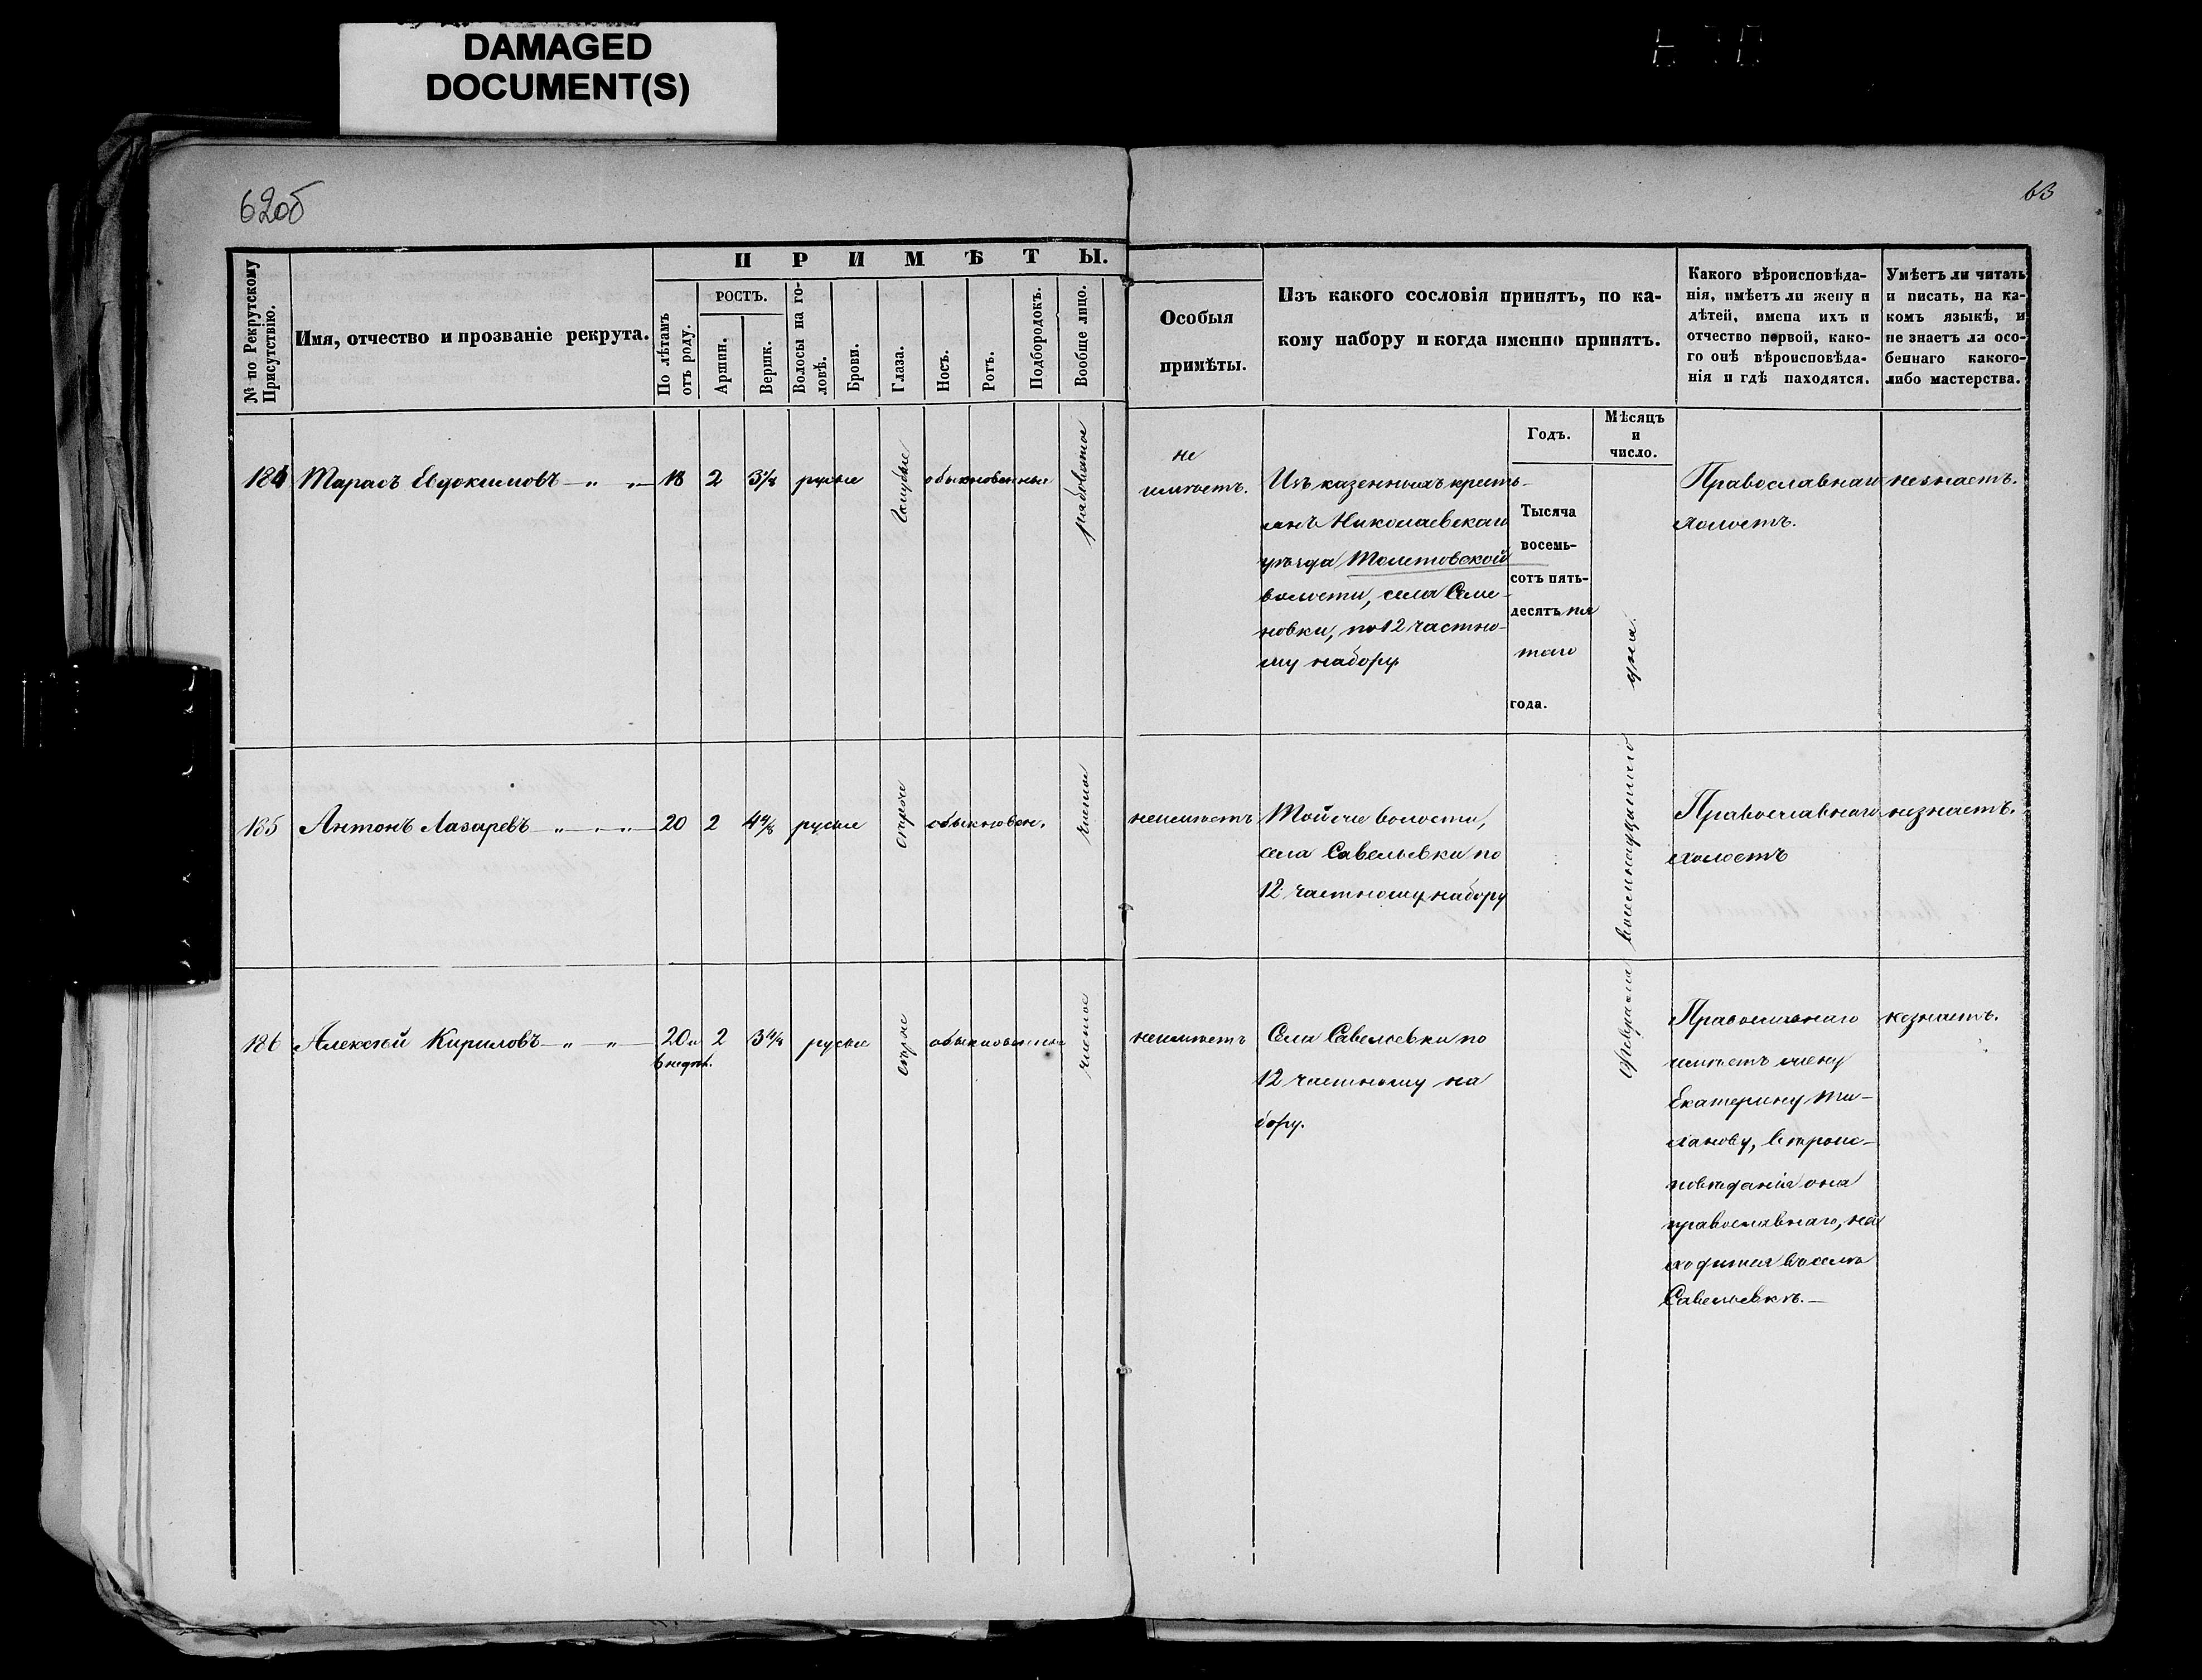 DAMAGED
DOCUMENT(S)
62об
63
№ по Рекрутскому
Присутствію.
Имя, отчество и прозваніе рекрута.
ПРИМѢТЫ.
По лѣтамъ
отъ роду.
РОСТЪ.
Аршин.
Вершк.
Волосы на го-
ловѣ.
Брови.
Глаза.
Носъ.
Ротъ.
Подбородокъ.
Вообще лицо.
Особыя
примѣты.
Изъ какого сословія принятъ, по ка-
кому набору и когда именно принятъ.
Какого вѣроисповѣда-
нія, имѣетъ ли жену и
дѣтей, имена ихъ и
отчество первой, како-
го онѣ вѣроисповѣда-
нія и гдѣ находятся.
Умѣетъ ли читать
и писать, на ка-
комъ языкѣ, и
не знаетъ ли осо-
беннаго какого-
либо мастерства.
Годъ.
Мѣсяцъ
и
число.
184 Тарасъ Евдокимовъ — „ „ — 18 2 3⅛ русые голубые обыкновенные рябоватое
не
имѣетъ.
Изъ казенныхъ кресть-
янъ Николаевскаго
уѣзда Толстовской
волости, села Семе-
новки, по 12 частно-
му набору
Тысяча
восемь-
сотъ пять-
десятъ пя
таго
года.
Февраля восемнадцатаго дня.
Православнаго
холостъ.
незнаетъ.
185 Антонъ Лазаревъ — „ — „ — 20 2 4⁴⁄₈ русые сѣрые обыкновен. чистое
неимѣетъ
Той же волости,
села Савельевки по
12 частному набору
Православнаго
холостъ
незнаетъ.
186 Алексѣй Кириловъ — „ — „ — 20 и 2 3⁴⁄₈ русые сѣрые обыкновенные чистое
6 недѣл.
неимѣетъ
Села Савельевки по
12 частному на
бору.
Православнаго
имѣетъ жену
Екатерину Ми-
ланову, вѣроис-
повѣданія она
православнаго, на
ходится въ селѣ
Савельевкѣ. —
незнаетъ.